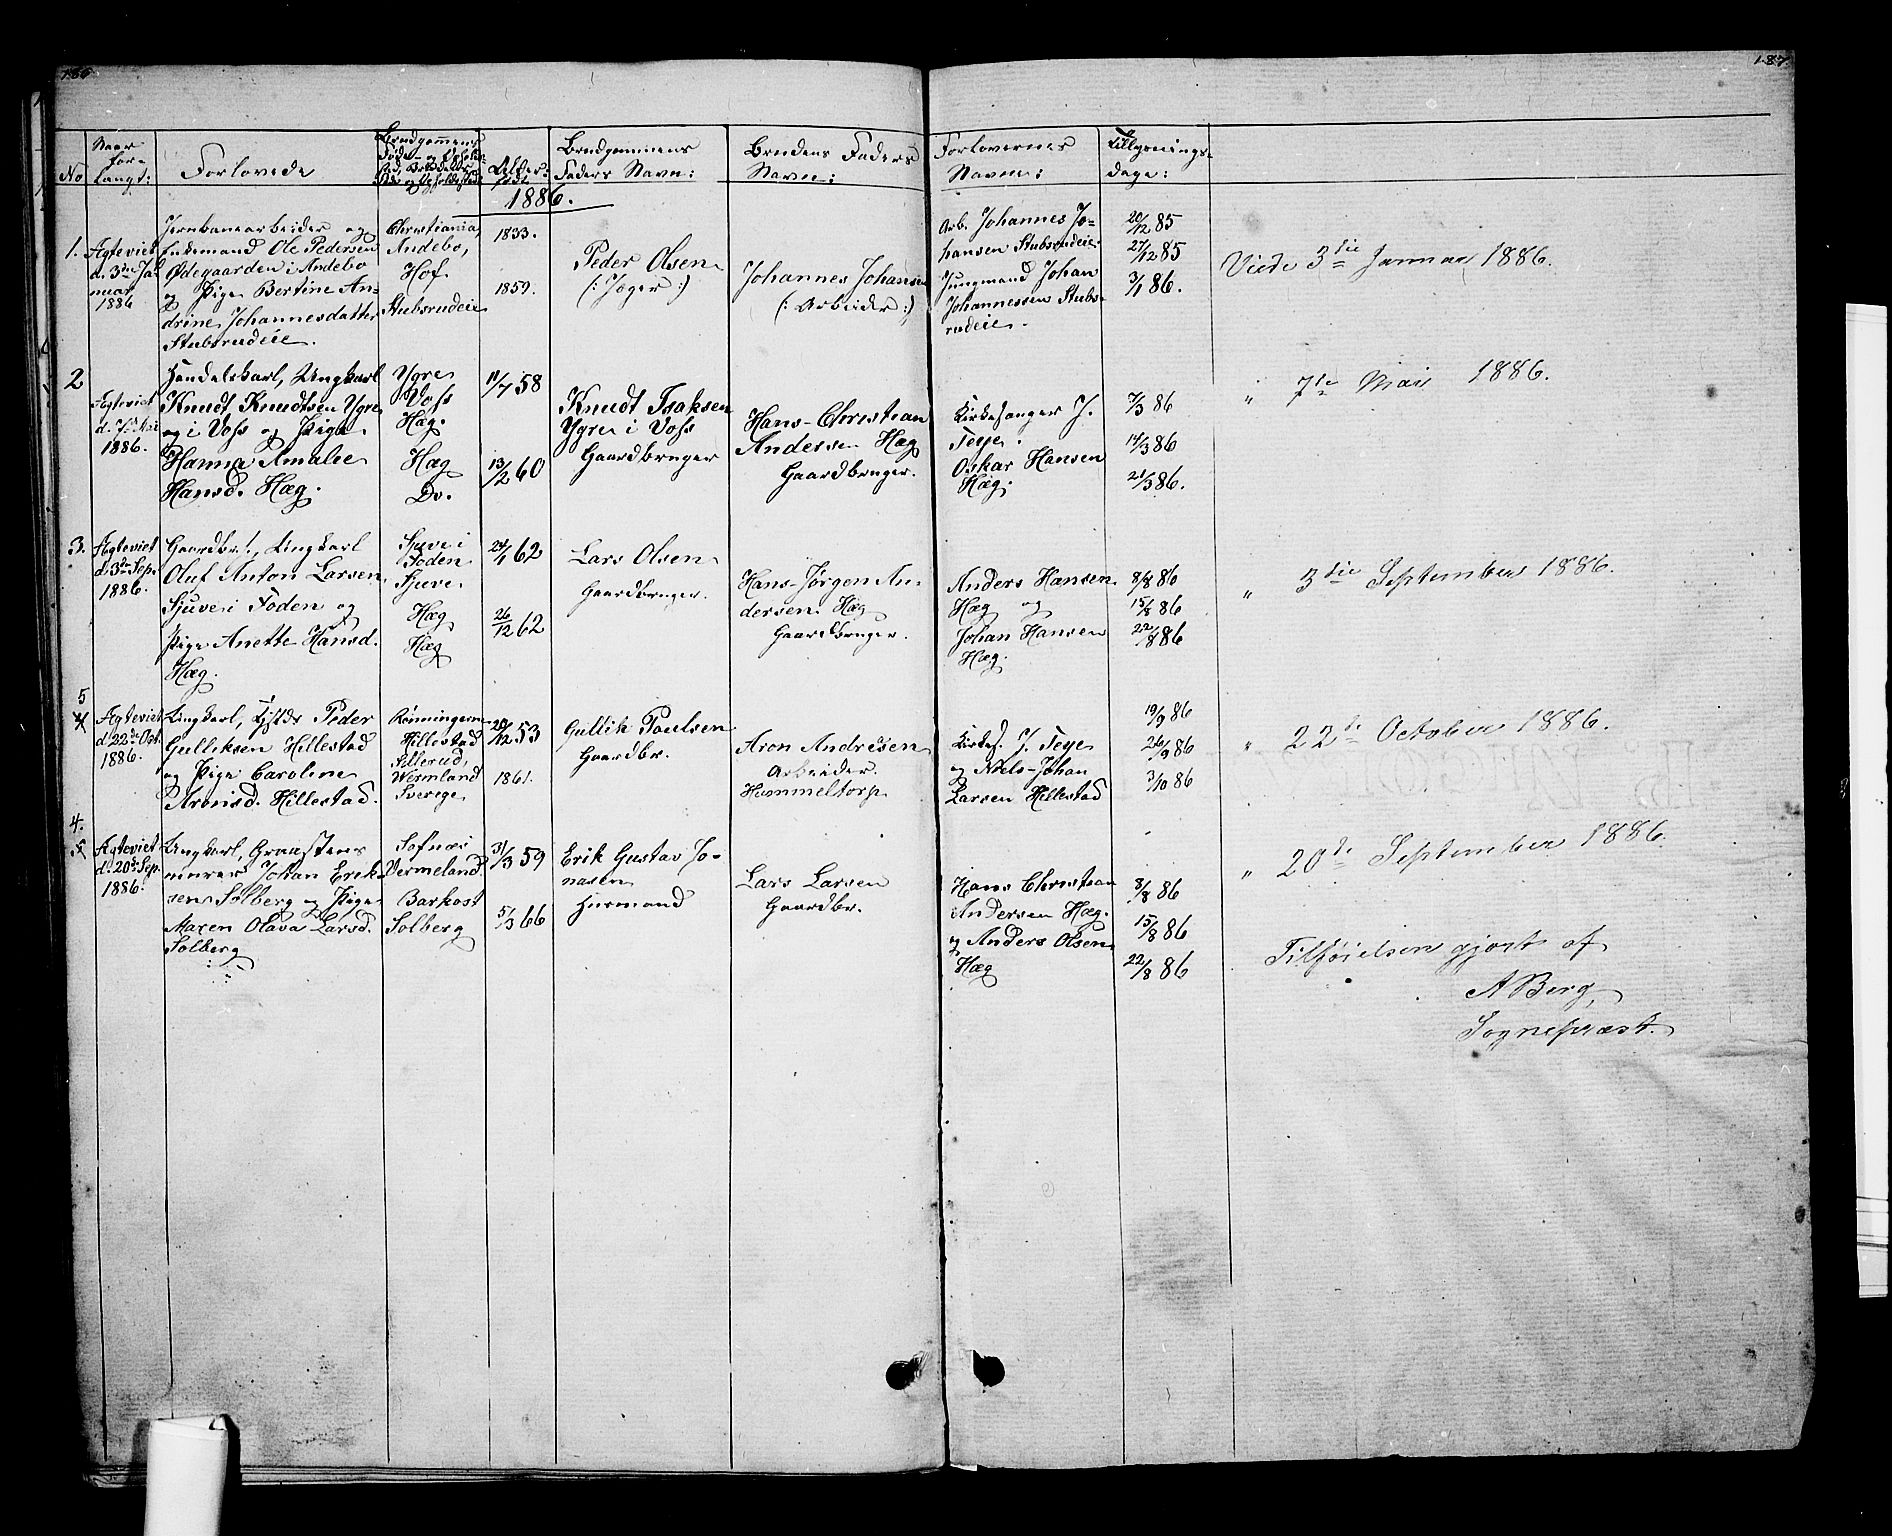 186
187
No
Naar
for-
langt:
Forlovede
Brudgommens
Føde- og
Alder:
Brudgommens
Faders Navn:
Brudens Faders
Navn:
Forlovernes
Navne:
Tillysnings-
dage:
1886.
1.
Ægteviet
d. 3die Ja-
nuar
1886
Jernbanearbeider og
Enkemand Ole Pedersen
Ødegaarden i Andebo
og Pige Bertine An-
drine Johannesdatter
Stubsrudeie.
Christiania,
Andebo,
Hof.
Stubsrudeie
1833.
1859.
Peder Olsen
(: Jæger :)
Johannes Johansen
(: Arbeider :)
Arb. Johannes Jo-
hansen Stubsrudeie.
Jungmand Johan
Johannessen Stubs-
rudeie.
20/12 85
27/12 85
3/1 86.
Viede 3die Januar 1886.
2
Ægteviet
d. 7de Mai
1886.
Handelskarl, Ungkarl
Knudt Knudtsen Ygre
i Voss og Pige
Hanna Amalie
Hansd. Hæg.
Ygre
Voss
Hæg.
Hæg
Do.
11/7 58
13/2 60
Knudt Isaksen
Ygre i Voss
Gaardbruger
Hans-Christian
Andersen Hæg
Gaardbruger.
Kirkesanger J.
Teye.
Oskar Hansen
Hæg.
7/3 86
14/3 86
21/3 86.
" 7de Mai 1886.
3.
Ægteviet
d. 3die Sep.
1886.
Gaardbr., Ungkarl
Oluf Anton Larsen
Sjuve i Foden og
Pige Anette Hansd.
Hæg.
Sjuve i
Foden
Sjuve.
Hæg
Hæg
24/1 62
26/12 62
Lars Olsen
Gaardbruger.
Hans-Jørgen An-
dersen Hæg
Gaardbruger.
Anders Hansen
Hæg og
Johan Hansen
Hæg.
8/8 86
15/8 86
22/8 86
" 3die September 1886.
5
4
Ægteviet
d. 22de Oct.
1886.
Ungkarl, Peder
Gulliksen Hillestad
og Pige Caroline
Aronsd. Hillestad.
Rønningen
Hillestad
Sillerud,
Wermland
Sverige
20/12 53
1861.
Gullik Paulsen
Gaardbr.
Aron Andresen
Arbeider.
Hummeltorp
Kirkes. J. Teye
og Niels-Johan
Larsen Hillestad
19/9 86
26/9 86
3/10 86
" 22de October 1886.
4.
5
Ægteviet
d. 20de Sep.
1886.
Ungkarl, Graastens
minrer Johan Erik-
sen Solberg og Pige
Maren Olava Larsd.
Solberg
Vermeland
Barkost
Solberg
31/3 59
5/3 66
Erik Gustav Jo-
nasen
Husmand
Lars Larsen
Gaardbr.
Hans Christian
Andersen Hæg.
og Anders Olsen
Hæg
8/8 86
15/8 86
22/8 86
" 20de September 1886.
Tilføielsen gjort af
A Berg,
Sognepræst.